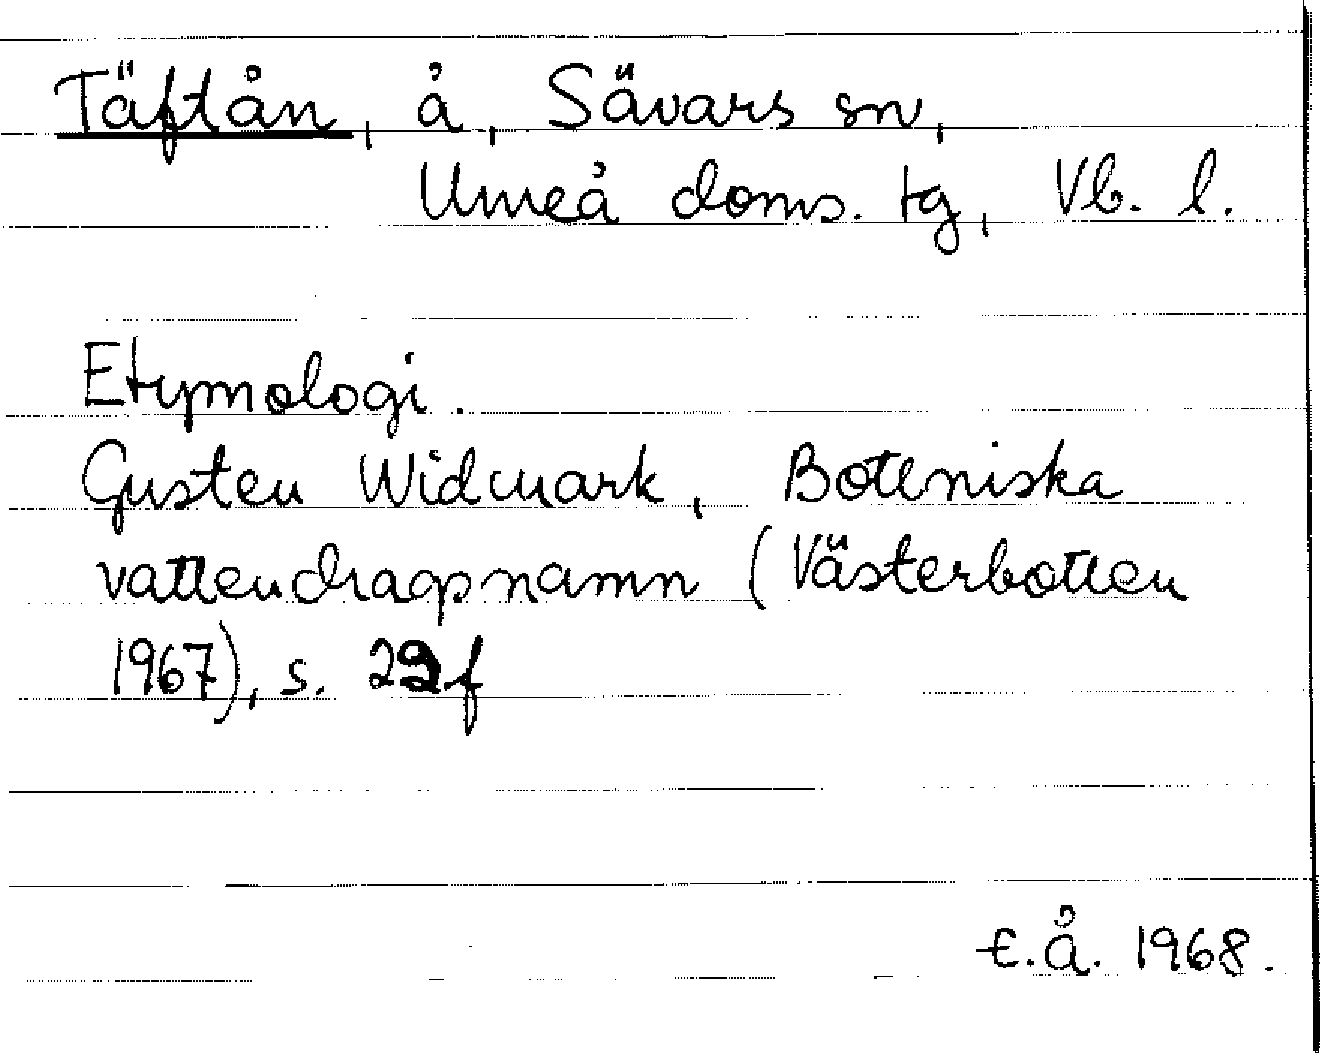 Täftån, å, Sävars sn,
Umeå doms. tg, Vb. l.
Etymologi.
Gusten Widmark, Botniska
vattendragsnamn (Västerbotten
1967), s. 22f
E.Å. 1968.